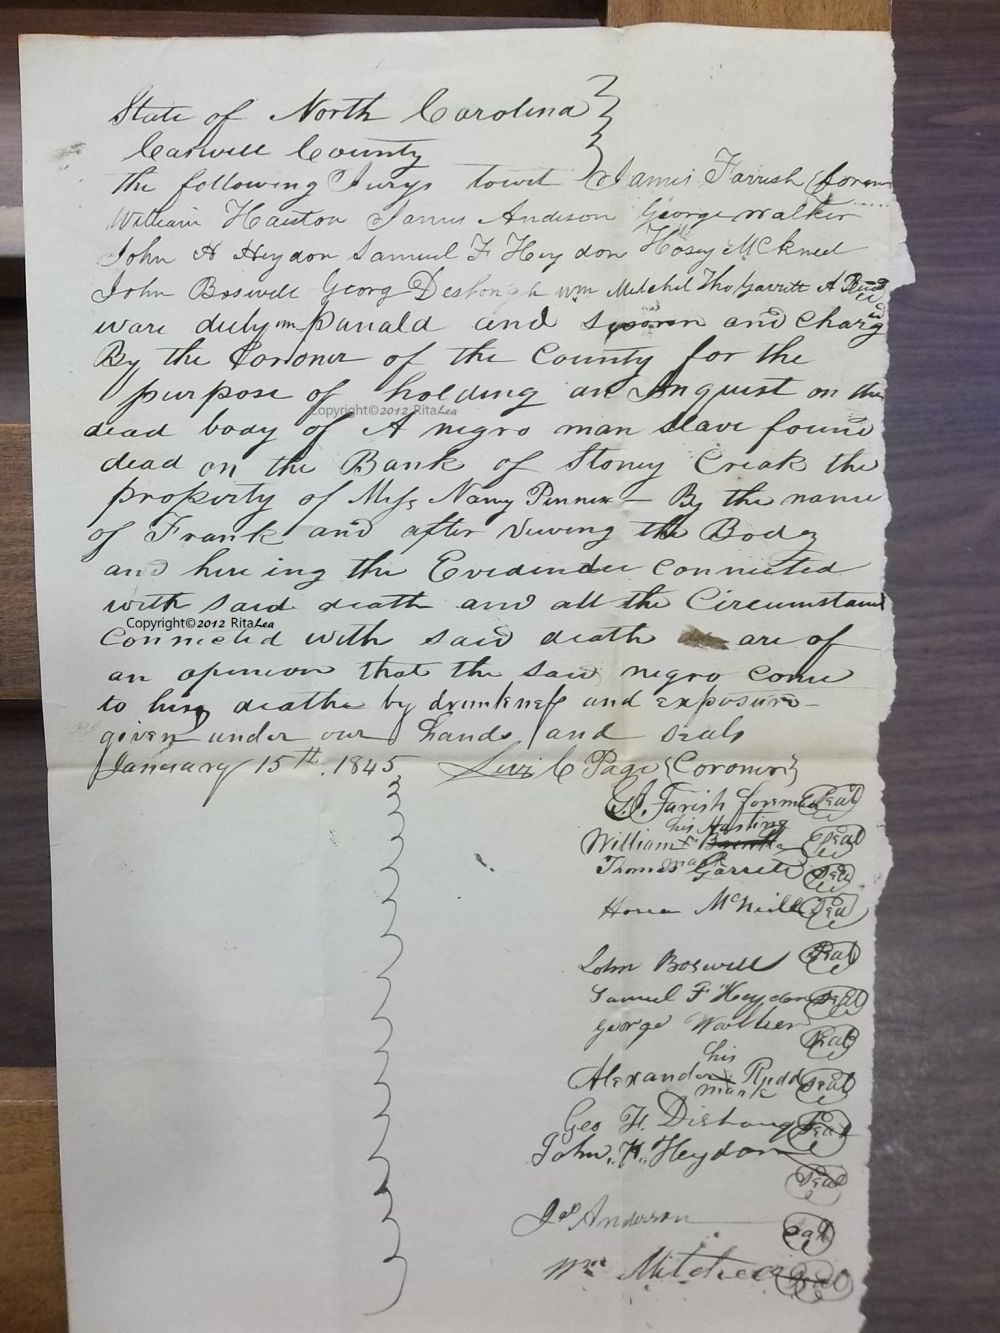 State of North Carolina
Caswell County
the following Jurys towit James Farrish forem
William Haiston James Andison George Walker
John H Heydon Samuel F Heydon Hosey McKneel
John Boswell Georg Deshongh Wm Mitchil Tho Garritt A Rud
ware duly panald and sworn and Charg
By the Coroner of the County for the
purpose of holding an Inquist on the
dead body of A negro man slave found
dead on the Bank of Stoney Creak the
property of Miss Nancy Pinnix – By the name
of Frank and after viewing the Body
and hereing the Evidence connected
with said death and all the Circumstan
Connected with said death are of
an opinion that the said negro come
to his deathe by drunkness and exposure –
given under our hands and seals
January 15th. 1845 Levi C Page {Coroner}
G. J. Farish foreman Seal
his Hasting
William X Seal
mark
Thomas Garrett Seal
Hosea McNeill Seal
John Boswell Seal
Samuel F Heydon Seal
George Walker Seal
his
Alexander X Rudd Seal
mark
Geo H. Dishough Seal
John, H, Heydon
Seal
Jas Anderson Seal
Wm Mitchell Seal
Copyright©2012 RitaLea
Copyright©2012 RitaLea